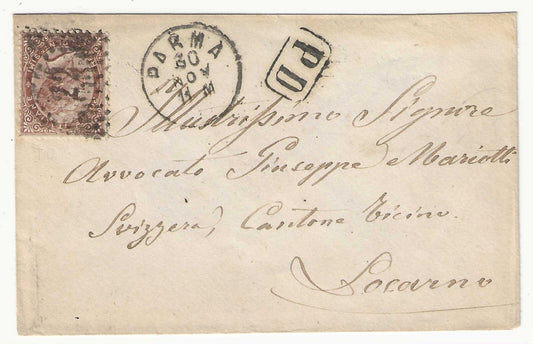 PARMA
30
NOV
11 M
PD
22
Illustrissimo Signore
Avvocato Giuseppe Mariotti
Svizzera, Cantone Ticino.
Locarno